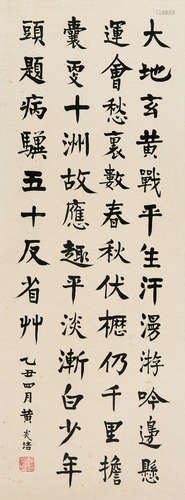 大地玄黄戰平生汗漫游吟邊懸
運會愁裏數春秋伏櫪仍千里擔
囊雯十洲故應趣平淡漸白少年
頭題病驥五十反省艸
乙丑四月黄炎培